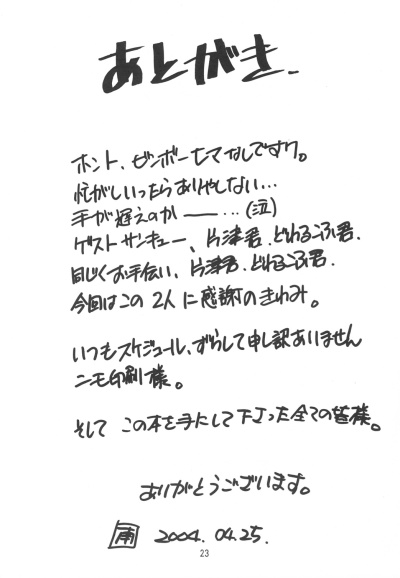 あとがき
ホント、ビンボーヒマなしですワ。
忙がしいったらありゃしない…
手が遅えのか――…(泣)
ゲストサンキュー、片津君、どれろふ君、
同じくお手伝い、片津君、どれろふ君、
今回はこの2人に感謝のきわみ。
いつもスケジュール、ずらして申し訳ありません
ニモ印刷様。
そして この本を手にして下さった全ての皆様。
ありがとうございます。
南 2004.04.25.
23